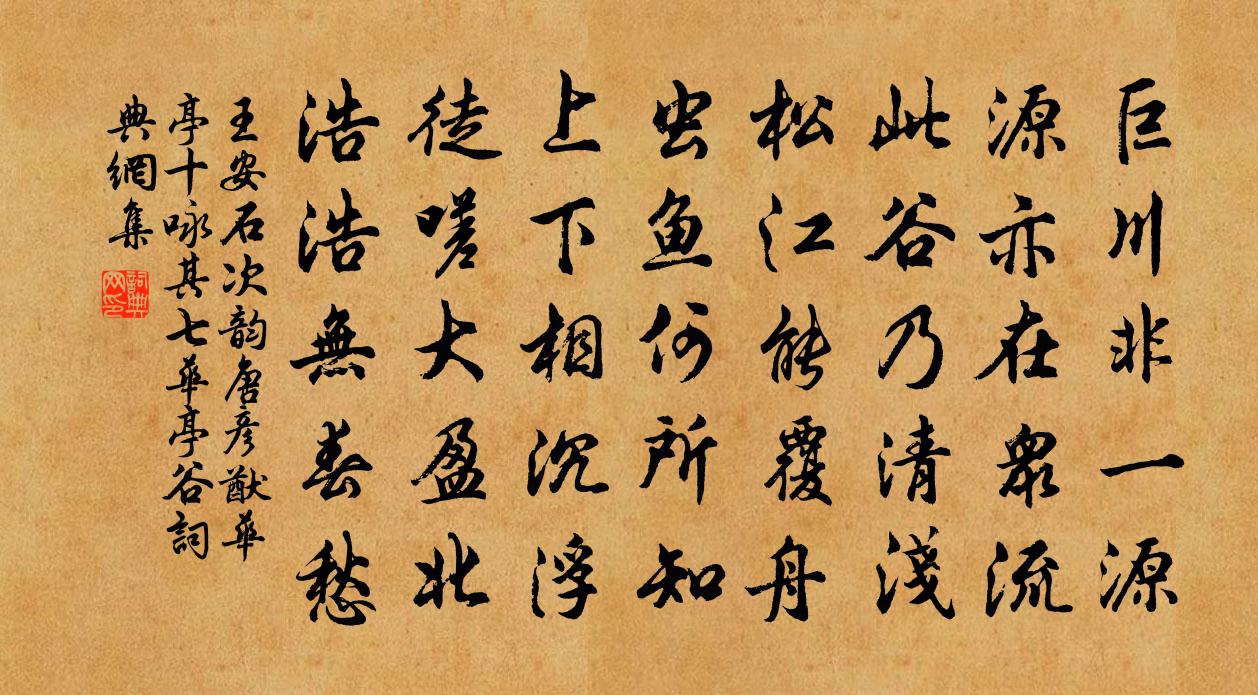 巨川非一源
源亦在衆流
此谷乃清淺
松江能覆舟
虫鱼何所知
上下相沉浮
徒嗟大盈北
浩浩無春愁
王安石次韵唐彦猷華
亭十咏其七華亭谷詞
典網集
詞典
网印